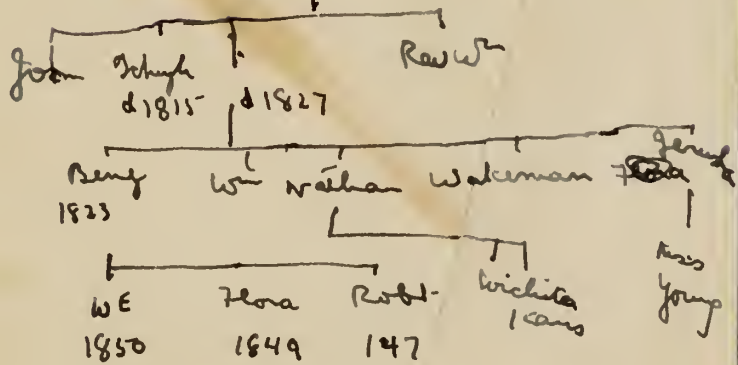 John Rev Wm
d 1815 d 1827
Benj Wm Nathan Wakeman Flora Jerusha
1823
WE Flora Robt. Wichita Kans Miss Young
1850 1849 147